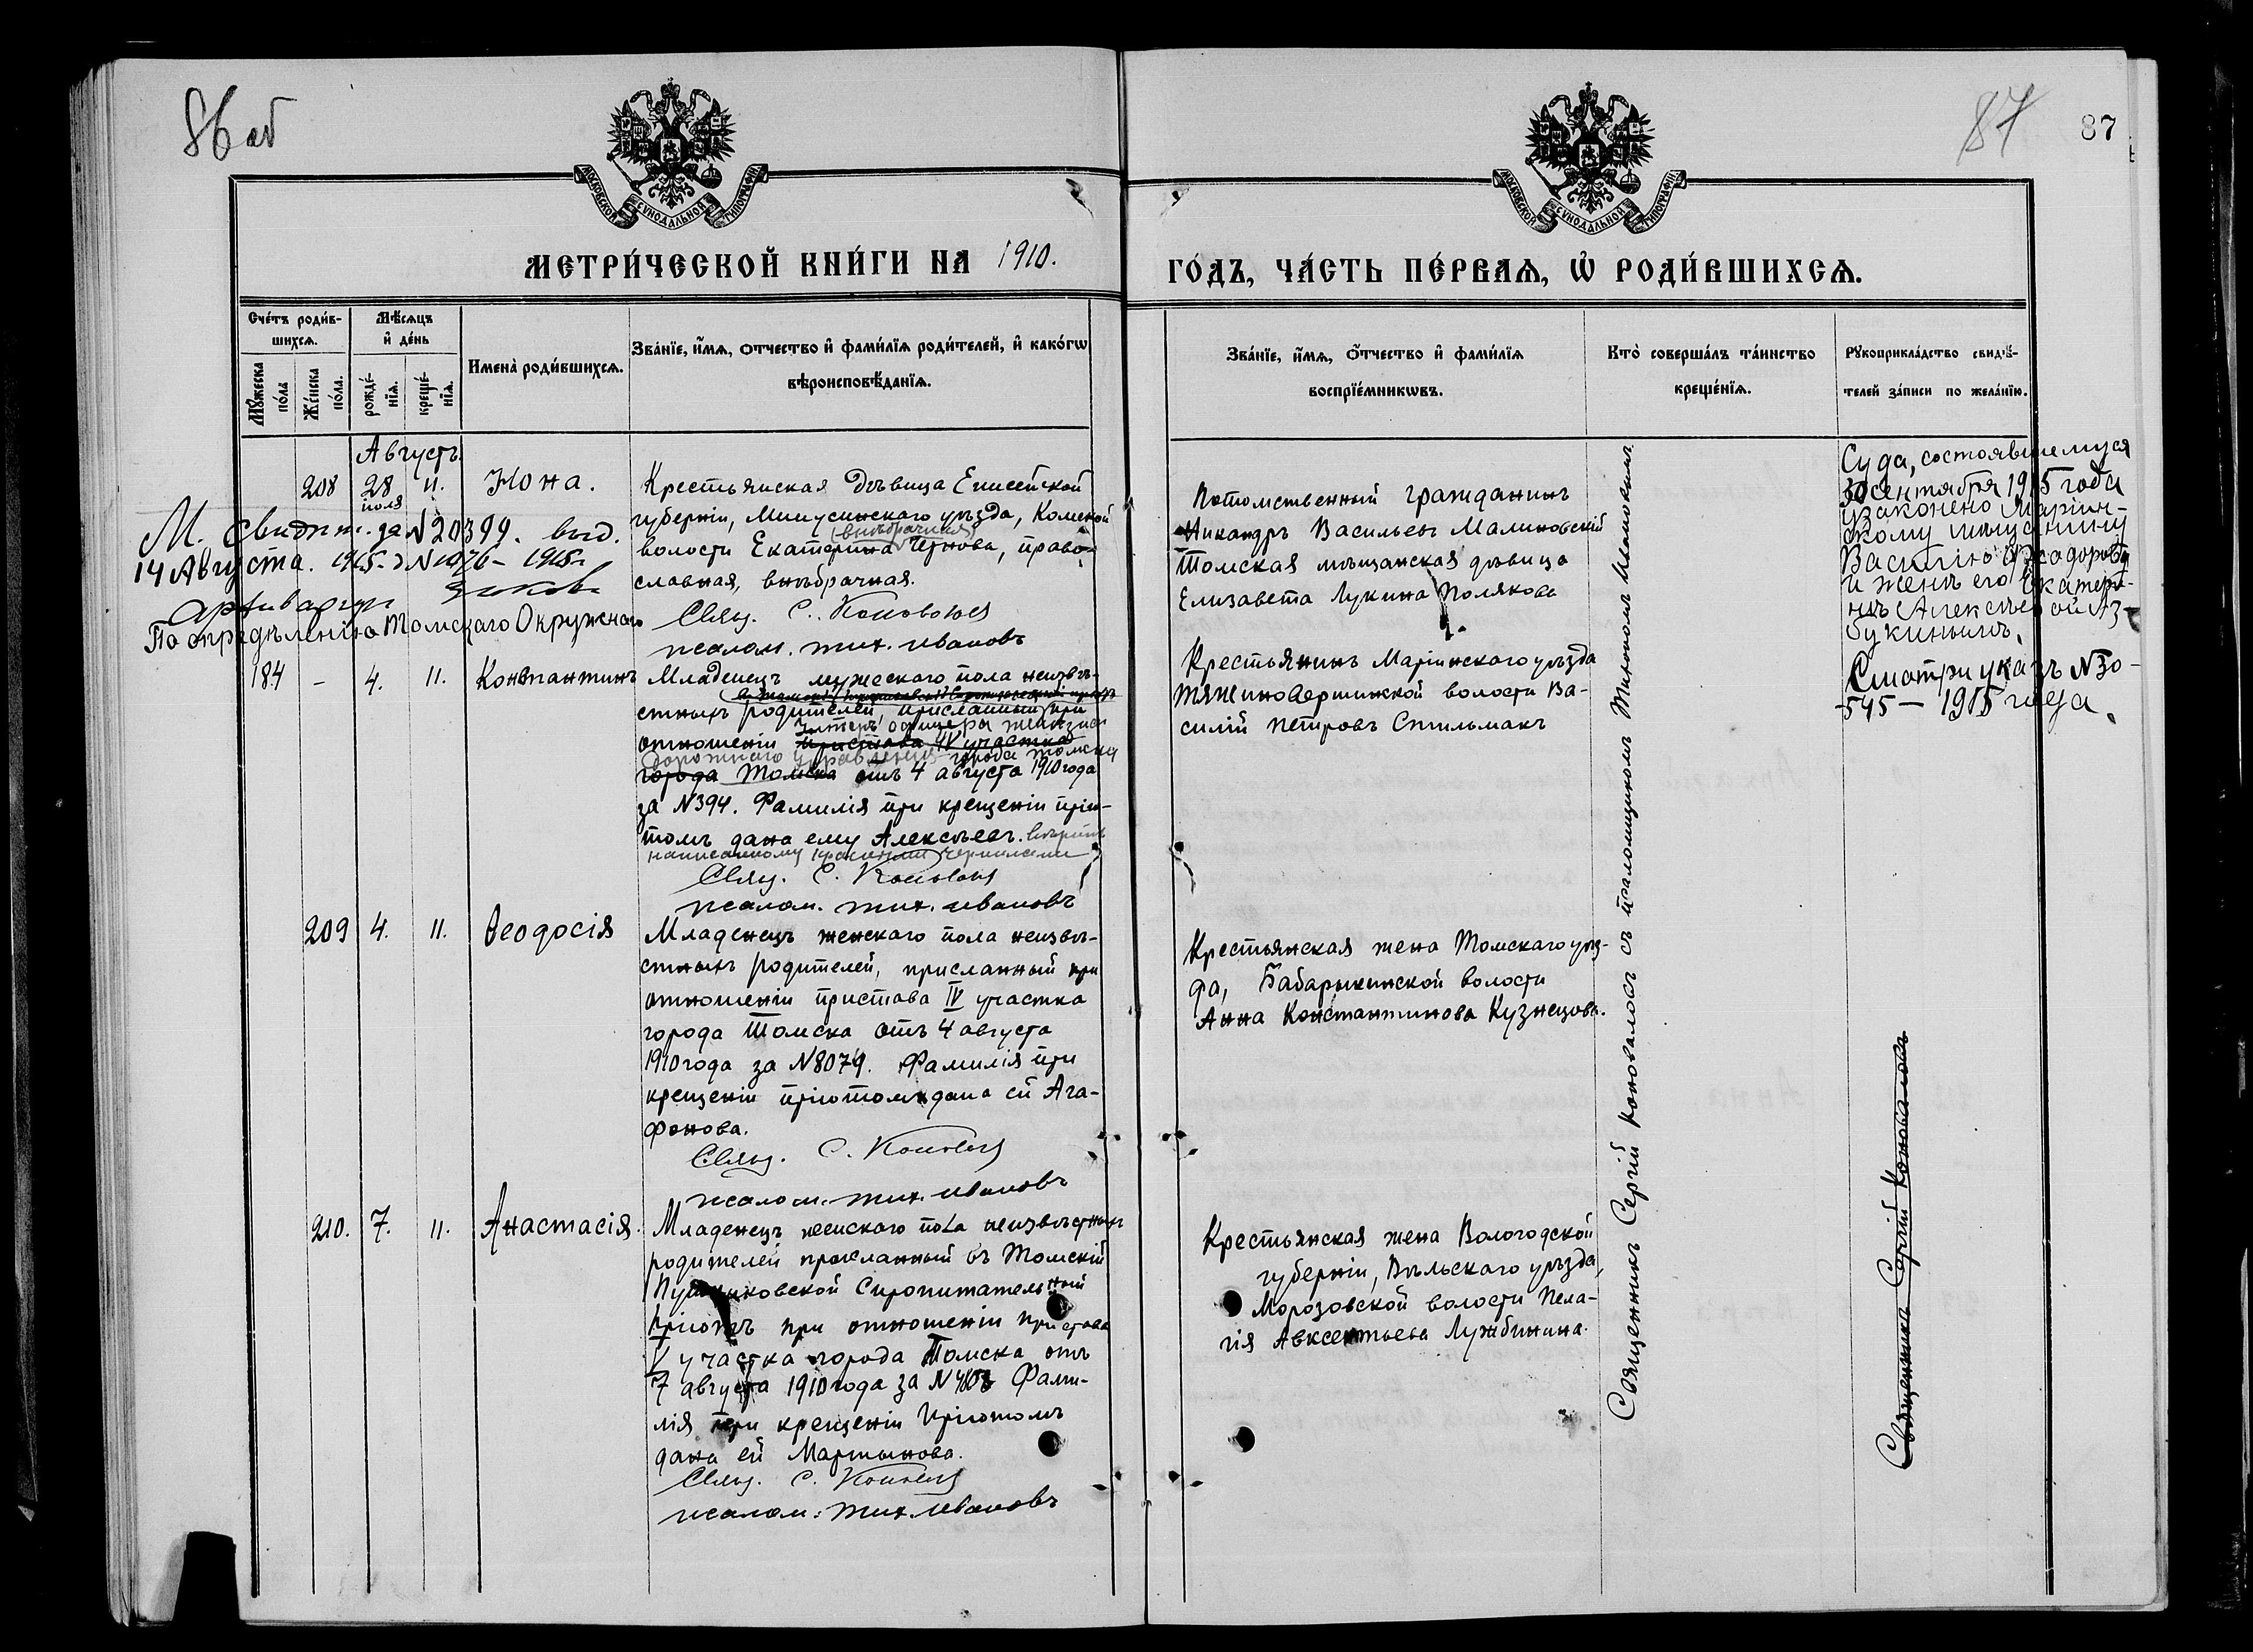 86 об
87
87
МОСКОВСКОЙ СѴНОДАЛЬНОЙ ТИПОГРАФІИ
МОСКОВСКОЙ СѴНОДАЛЬНОЙ ТИПОГРАФІИ
МЕТРИ́ЧЕСКОЙ КНИ́ГИ НА 1910.
ГО́ДЪ, ЧА́СТЬ ПЕ́РВАѦ, Ѡ҆ РОДИ́ВШИХСѦ.
Сче́тъ роди́в-
шихсѧ.
Мꙋ́жеска по́ла
Же́нска по́ла.
Мѣ́сѧцъ
и҆ де́нь
рожде́-
нїѧ.
креще́-
нїѧ.
Имена̀ роди́вшихсѧ.
Зва́нїе, и҆́мѧ, о҆́тчество и҆ фами́лїѧ роди́телей, и҆ како́гѡ
вѣроисповѣ́данїѧ.
Зва́нїе, и҆́мѧ, о҆́тчество и҆ фами́лїѧ
воспрїе́мникѡвъ.
Кто̀ соверша́лъ та́инство
креще́нїѧ.
Рꙋкоприкла́дство свидѣ́-
телей за́писи по жела́нїю.
Августъ.
208 28 іюля 11. Нона.
Крестьянская дѣвица Енисейской
губерніи, Минусинскаго уѣзда, Комской
волости Екатерина православная, внѣбрачная.
Свящ. С. Коновалов
псалом. Тих. Ивановъ
Потомственный гражданинъ
Никандръ Васильевъ Малиновскій
Томская мѣщанская дѣвица
Елизавета Лукина Полякова
М. Свидѣт. за N 20399. выд.
14 Августа. 1915 N 1076 - 1915
Архиваріус
По опредѣленію Томскаго Окружнаго
Суда, состоявшемуся
30 сентября 1915 года
узаконено Маріин-
скому мѣщанину
Василію Ѳедорову
и женѣ его Екатери-
нѣ Алексѣевой Аз-
букинымъ.
Смотри указъ N 30-
545 - 1915 года.
184 - 4. 11. Константинъ
Младенецъ мужескаго пола неизвѣ-
стныхъ родителей присланный при
унтеръ офицера желѣзно
отношеніи пристава IV участка
дорожнаго управленія города Томска
города Томска отъ 4 августа 1910 года
за N 394. Фамилія при крещеніи прію-
томъ дана ему Алексѣевъ. вѣрить
написанному красными чернилами
Свящ. С. Коновалов
псалом. Тих. Ивановъ
Крестьянинъ Маріинскаго уѣзда
Тяжиновершинской волости Ва-
силій Петровъ Стильмакъ
209 4. 11. Ѳеодосія
Младенецъ женскаго пола неизвѣ-
стныхъ родителей, присланный при
отношеніи пристава IV участка
города Томска отъ 4 августа
1910 года за N 8079. Фамилія при
крещеніи пріютомъ дана ей Ага-
фонова.
Свящ. С. Коновалов
псалом. Тих. Ивановъ
Крестьянская жена Томскаго уѣз-
да, Бабарыкинской волости
Анна Константинова Кузнецова.
210. 7. 11. Анастасія.
Младенецъ женскаго пола неизвѣстныхъ
родителей присланный въ Томскій
Пушниковской Сиропитательный
пріютъ при отношеніи пристава
V участка города Томска отъ
7 августа 1910 года за N Фами-
лія при крещеніи пріютомъ
дана ей Мартынова.
Свящ. С. Коновалов
псалом. Тих. Ивановъ
Крестьянская жена Вологодской
губерніи, Вѣльскаго уѣзда,
Морозовской волости Пела-
гія Авксентьева Лужбинина.
Священникъ Сергій Коноваловъ съ псаломщикомъ Тихономъ Ивановымъ
Священникъ Сергій Коноваловъ